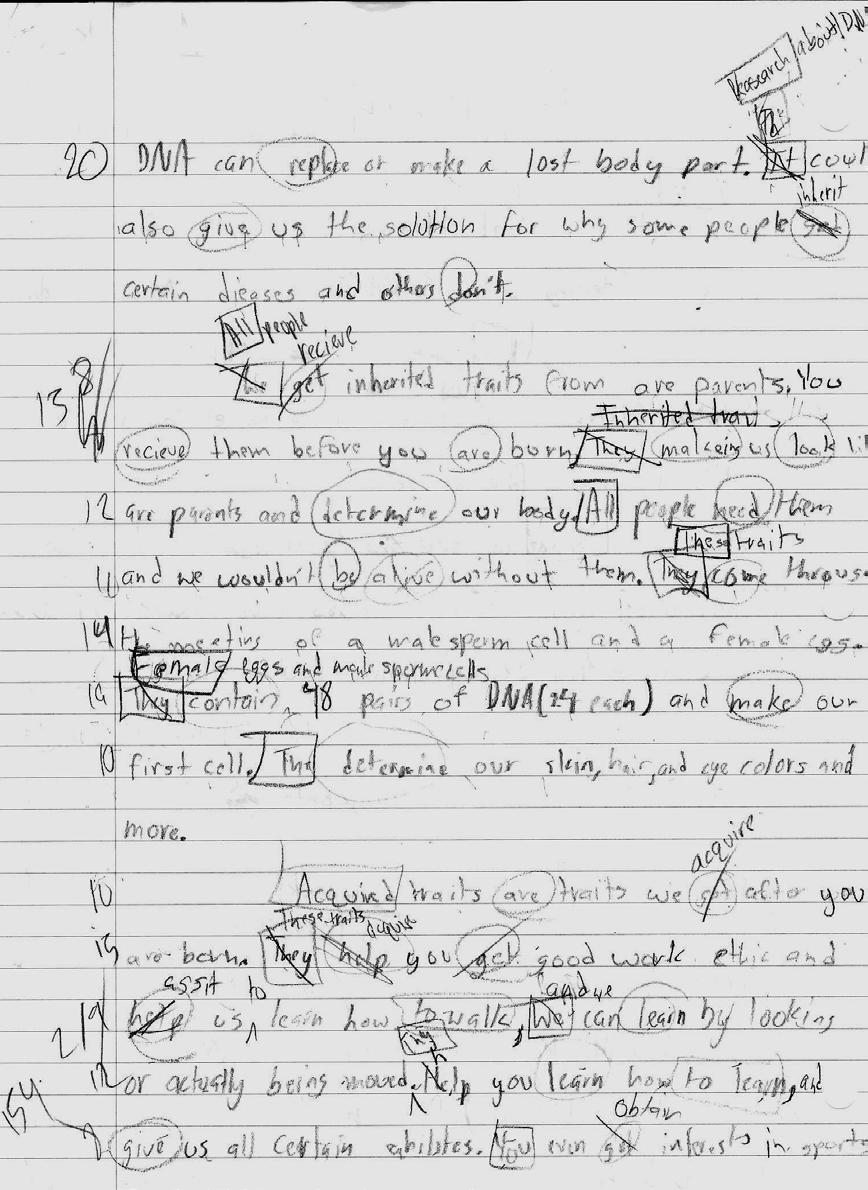 Research about DNA
20 DNA can replace or make a lost body part. It coul
inherit
also give us the solution for why some people get
certain dieases and others don't.
All people
recieve
13 8 We get inherited traits from are parents. You
Inherited trai
recieve them before you are born. They makeing us look li
12 are parents and determine our body. All people need them
These traits
11 and we wouldn't be alive without them. They come throug
14 the meeting of a male sperm cell and a female egg.
Female eggs and male sperm cells
They contain 48 pairs of DNA (24 each) and make our
10 first cell. The determine our skin, hair, and eye colors and
more.
acquire
10 Acquired traits are traits we get after you
These traits acquire
15 are born. They help you get good work ethic and
assit to and we
219 help us learn how to walk, We can learn by looking
They
or actually being moved. Help you learn how to learn, and
Obtain
154 give us all certain ablilites. You even get interests in sports